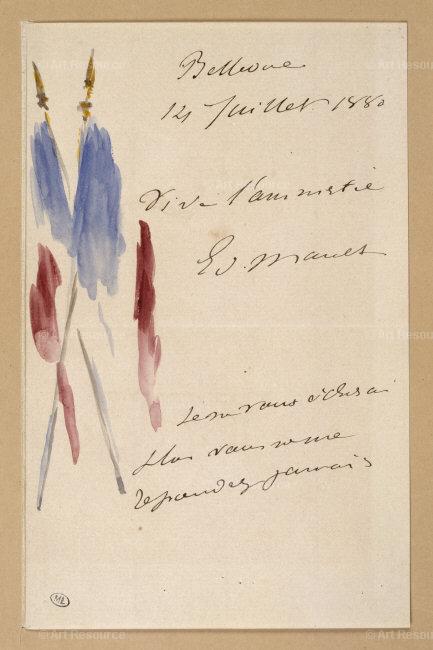 © Art Resource © Art Resource
Bellevue
14 Juillet 1880
Vive l'amnistie
Ed. Manet
Je ne vous écrirai
plus vous ne me
repondez jamais
ML
© Art Resource © Art Resource